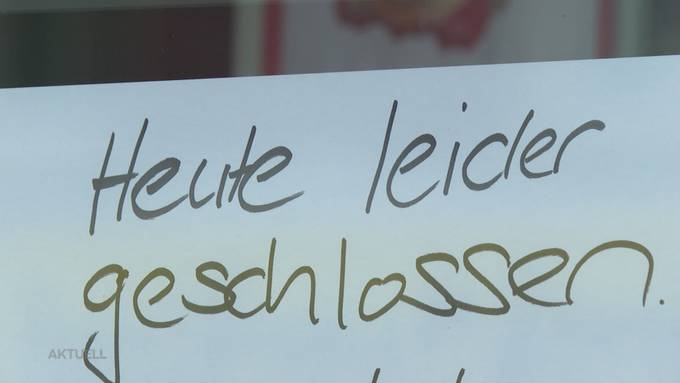 Heute leider
geschlossen.
AKTUELL